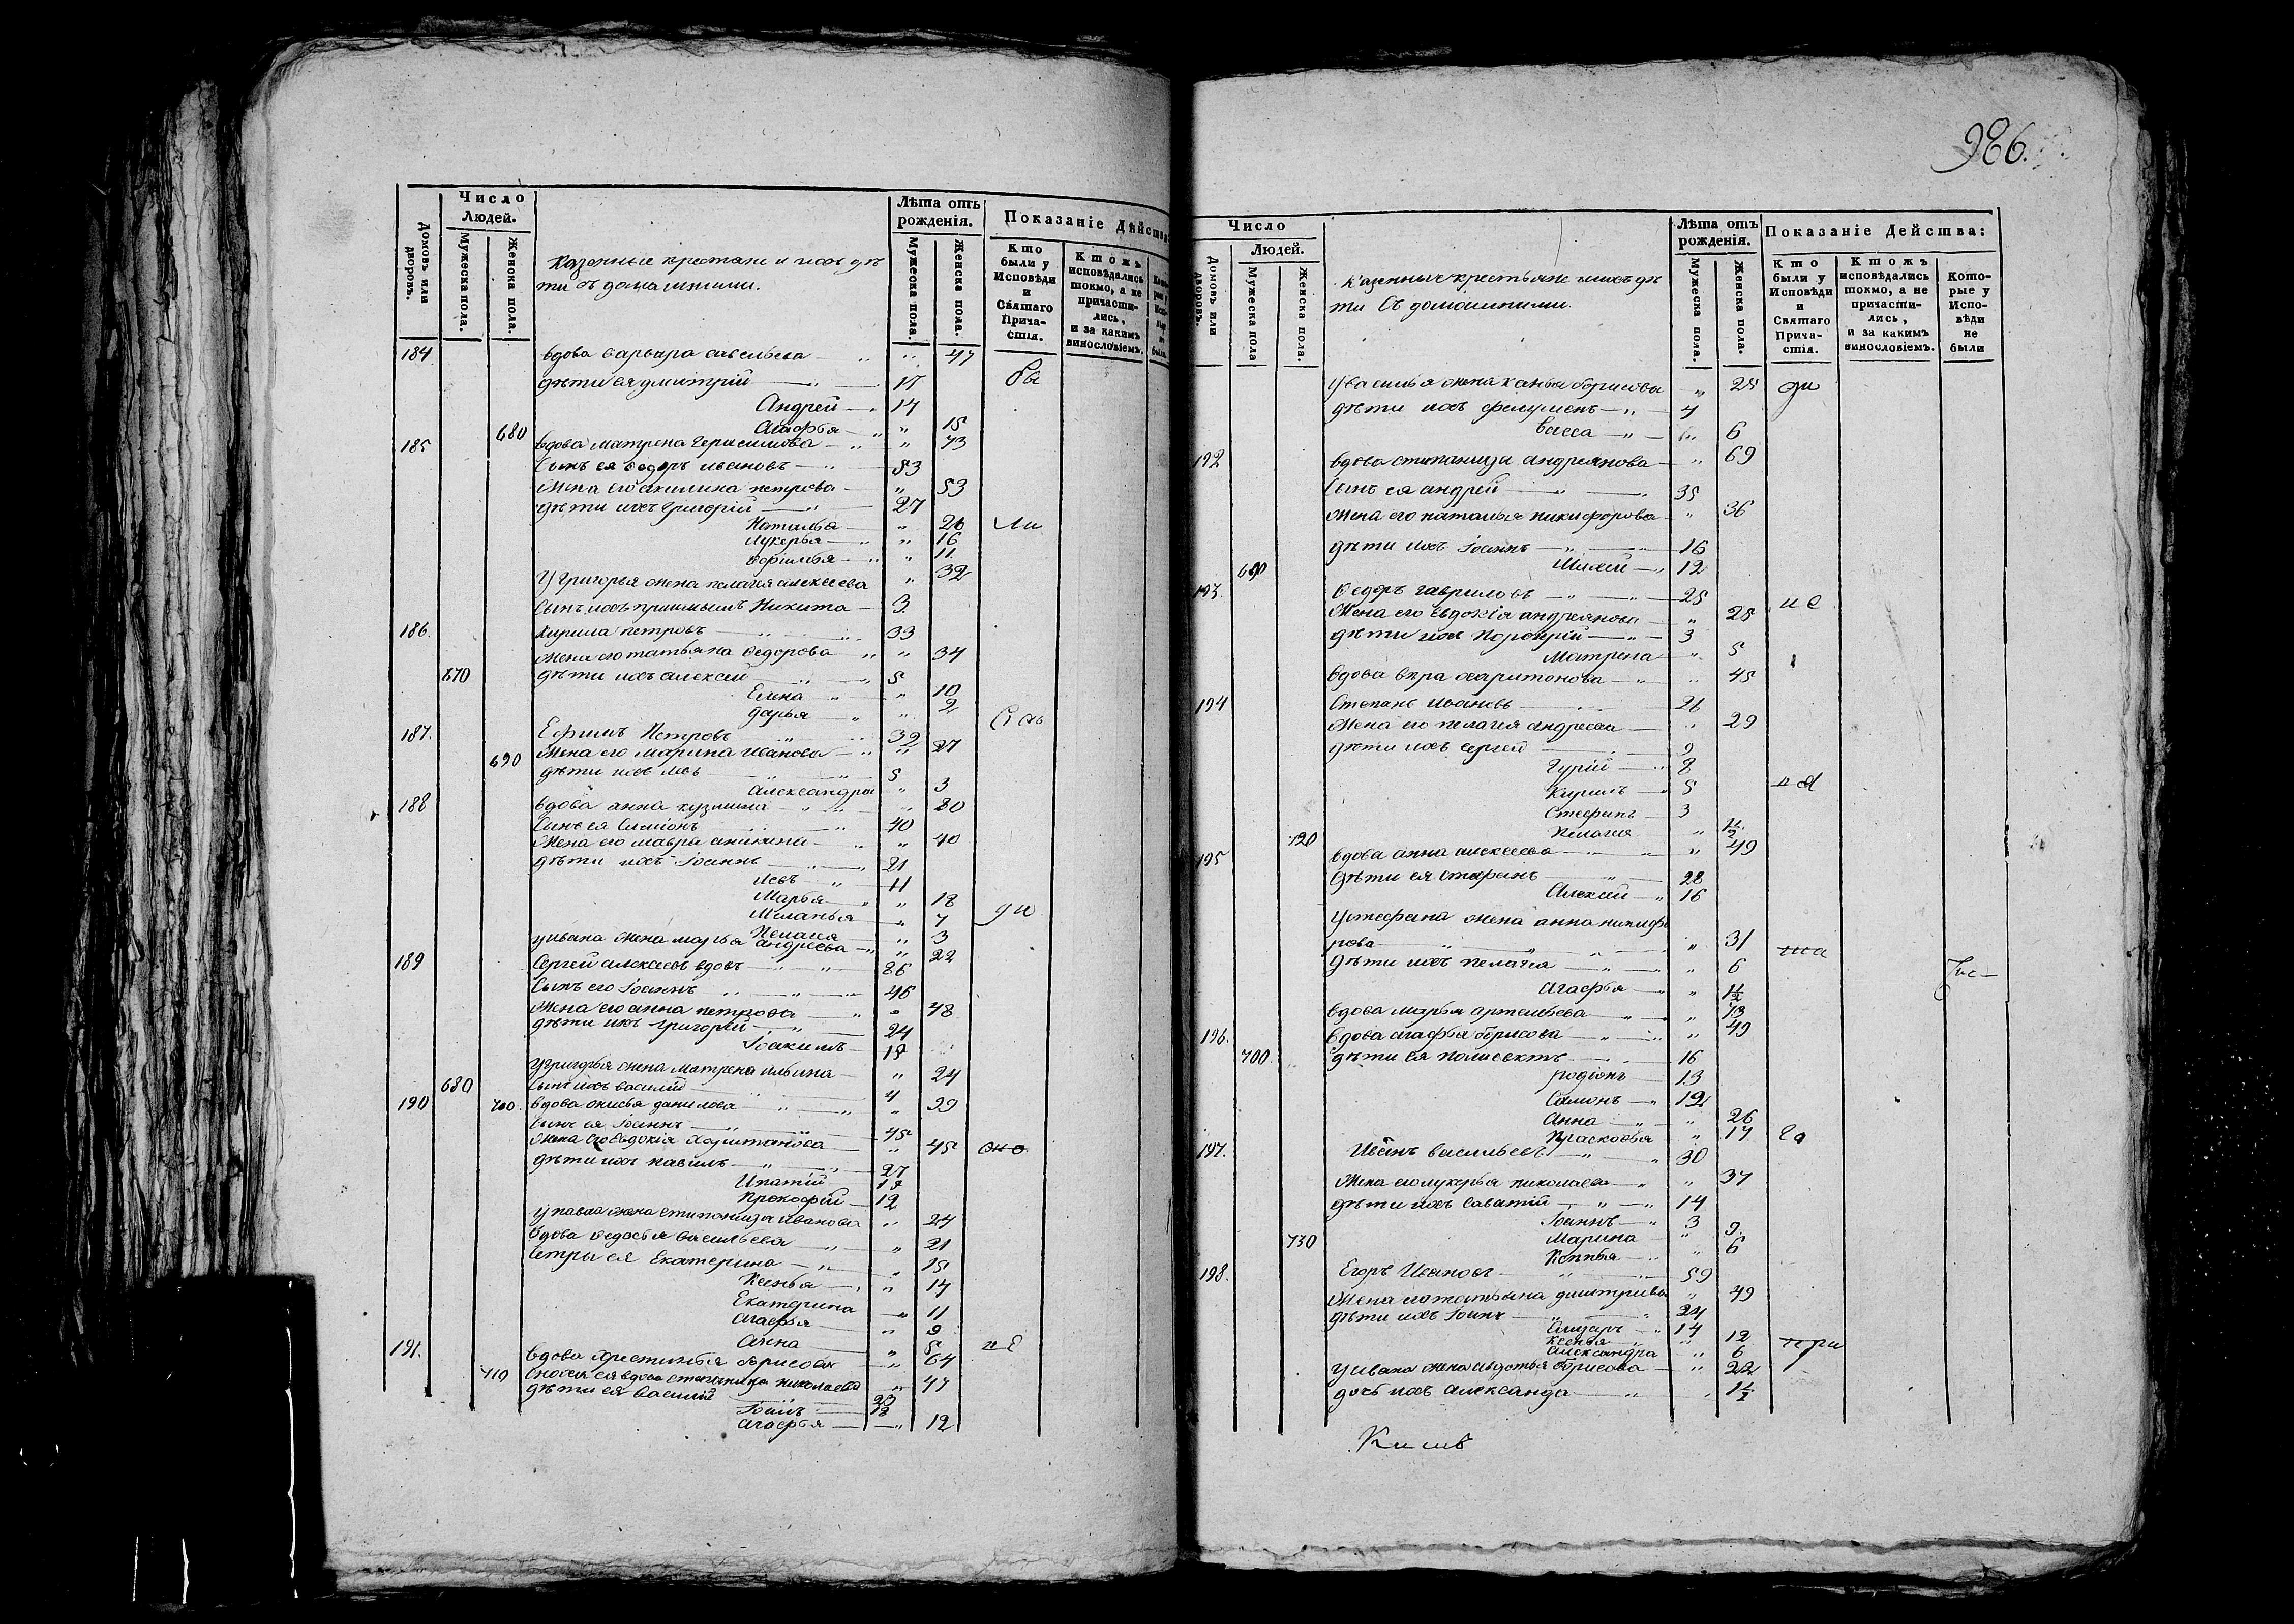 986.
Число
Людей.
Домовъ или дворовъ.
Мужеска пола.
Женска пола.
Казенные крестьяне и ихъ дѣ
ти съ домашними.
Лѣта отъ
рожденія.
Мужеска пола.
Женска пола.
Показаніе Дѣйства:
Кто были у Исповѣди и Святаго Причастія.
Ктожъ исповѣдались токмо, а не причастились, и за какимъ винословіемъ.
184 вдова варвара савельева — „ 47
дѣти ея дмитрій — 17 бы
Андрей — 14
680 Агафья — „ 15
185 вдова матрена Герасимова — „ 73
Сынъ ея Ѳедоръ ивановъ — 53
Жена его акилина петрова — „ 53
дѣти ихъ Григорій — 27
Наталья — „ 26 ли
Лукерья — „ 16
„ 11
У Григорья жена пелагея алексеева „ 32
Сынъ ихъ приимышъ Никита — 3
186. Кирила петровъ — 33
Жена его татьяна Ѳедорова — „ 34
870 дѣти ихъ алексей — 5
Елена — „ 10
дарья — „ 2
187. Ефимъ Петровъ — 32
690 Жена его марина иванова — „ 27
дѣти ихъ левъ — 5
александра „ 3
188 вдова анна кузмина — „ 80
Сынъ ея Симіонъ — 40
Жена его мавра — „ 40
дѣти ихъ Іоаннъ — 21
Левъ — 11
Марья — „ 18
Миланья — „ 7
Пелагея — „ 3
у ивана жена марья андреева — „ 22
189 Сергей алексеевъ вдовъ — 86
Сынъ его Іоаннъ — 46
Жена его анна петрова — „ 48
дѣти ихъ григорій — 24
Іоакимъ — 18
У григорья жена матрена ильина — „ 24
680 Сынъ ихъ василій — 4
190 700. вдова данилова — „ 99
Сынъ ея Іоаннъ — 45
Жена его Евдокія Харитонова — „ 45
дѣти ихъ павелъ — 27
Ипатій — 18
Прокофій — 12
у павла жена степанида иванова „ 24
вдова Ѳедосья васильева — „ 21
сестры ея Екатерина — „ 15
Ксенья — „ 14
Екатерина — „ 11
Агафья — „ 9
Анна — „ 5
191. вдова Христинья борисова — „ 64
710 Сноха ея вдова степанида николаева „ 47
дѣти ея василій — 20
Іоаннъ — 18
агафья — „ 12
Число
Людей.
Домовъ или дворовъ.
Мужеска пола
Женска пола.
Казенные крестьяне и ихъ дѣ
ти Съ домашними.
Лѣта отъ
рожденія.
Мужеска пола.
Женска пола.
Показаніе Дейсшва:
Кто были у Исповѣди и Святаго Причастія.
Ктожъ исповѣдались токмо, а не причастились, и за какимъ винословіемъ.
Которые у Исповѣди не были
У василья жена борисова „ 25
дѣти ихъ филумонъ — 4
васса — „ 6
192 вдова степанида андреянова — „ 69
Сынъ ея андрей — 35
Жена его наталья никифорова — „ 36
дѣти ихъ Іоаннъ — 16
690 12
193. Ѳедоръ гавриловъ — 25
Жена его Евдокія андреянова — „ 25
дѣти ихъ Порфирій — 3
Матрена — „ 5
вдова вѣра харитонова — „ 45
194 Степанъ ивановъ — 26
Жена его пелагея андреева — „ 29
дѣти ихъ сергей — 9
Гурій — 8
Кирилъ — 5
Стефанъ — 3
720 Пелагея „ 1½
195 вдова анна алексеева — „ 49
Дѣти ея стефанъ — 28
Алексей — 16
У стефана жена анна никифо
рова — „ 31
Дѣти ихъ пелагея — „ 6
Агафья — „ 1½
вдова марья артемьева — „ 73
196. вдова агафья борисова — „ 49
700. дѣти ея полиектъ — 16
родіонъ — 13
Самонъ — 12
Анна — „ 26
Прасковья „ 17
197. Иванъ васильевъ — 30
Жена его лукерья николаева — „ 37
дѣти ихъ саватій — 14
Іоаннъ — 3
730 Марина — „ 9
„ 6
198. Егоръ Ивановъ — 59
Жена его татьяна дмитриева „ 49
дѣти ихъ Іоаннъ — 24
Елизаръ — 14
Ксенья — „ 12
александра „ 6 при
У ивана жена авдотья борисова — „ 22
дочь ихъ александра — „ 1½